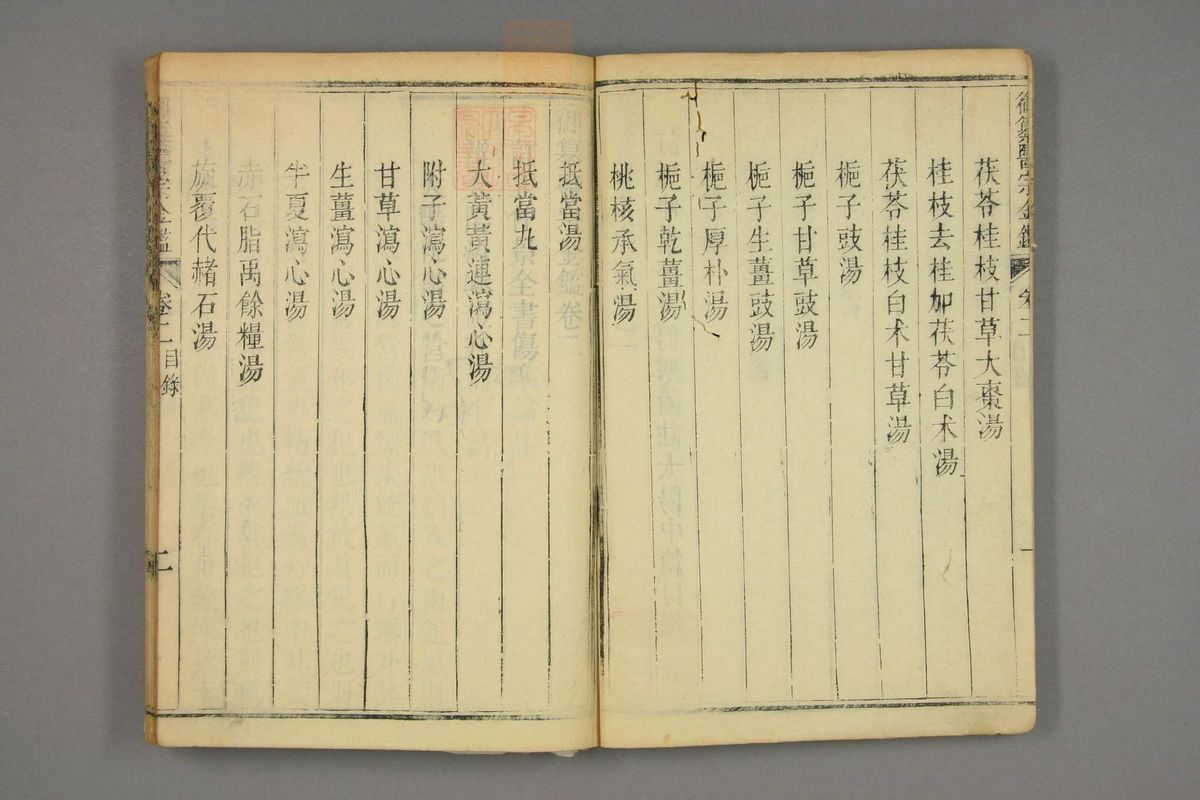 御纂醫宗金鑑
茯苓桂枝甘草大棗湯
桂枝去桂加茯苓白朮湯
茯苓桂枝白朮甘草湯
梔子豉湯
梔子甘草豉湯
梔子生薑豉湯
梔子厚朴湯
梔子乾薑湯
桃核承氣湯
抵當湯
抵當丸
大黃黃連瀉心湯
附子瀉心湯
甘草瀉心湯
生薑瀉心湯
半夏瀉心湯
赤石脂禹餘糧湯
旋覆代赭石湯
卷二 目錄
二